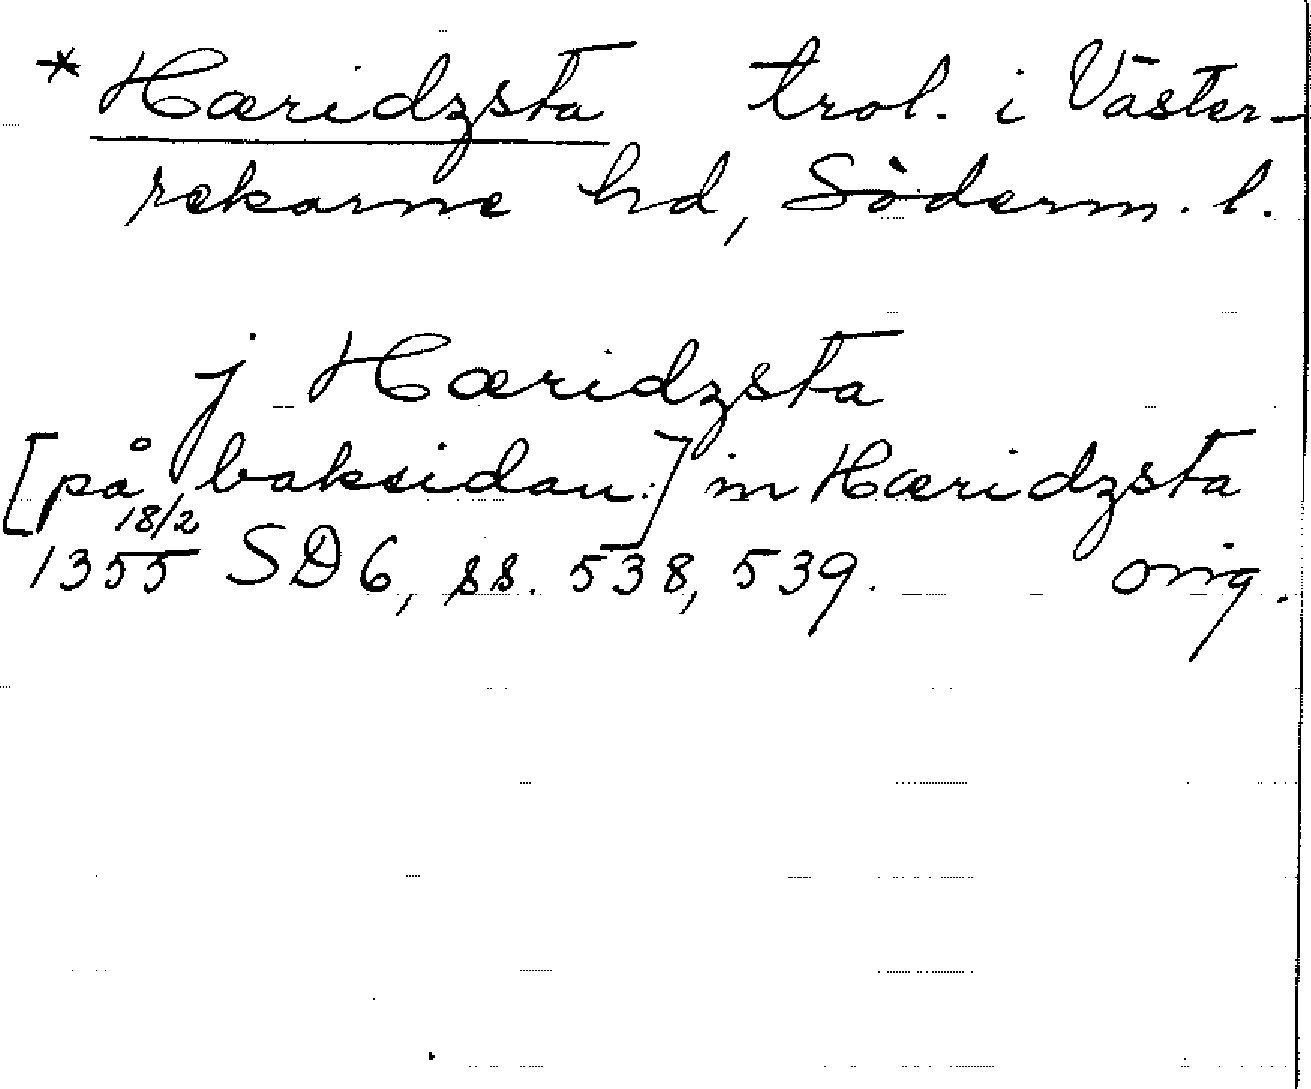 * Hæridzsta trol. i Väster-
rekarne hd, Söderm. l.
j Hæridzsta
[på baksidan:] in Hæridzsta
18/2
1355 SD 6, ss. 538, 539. orig.